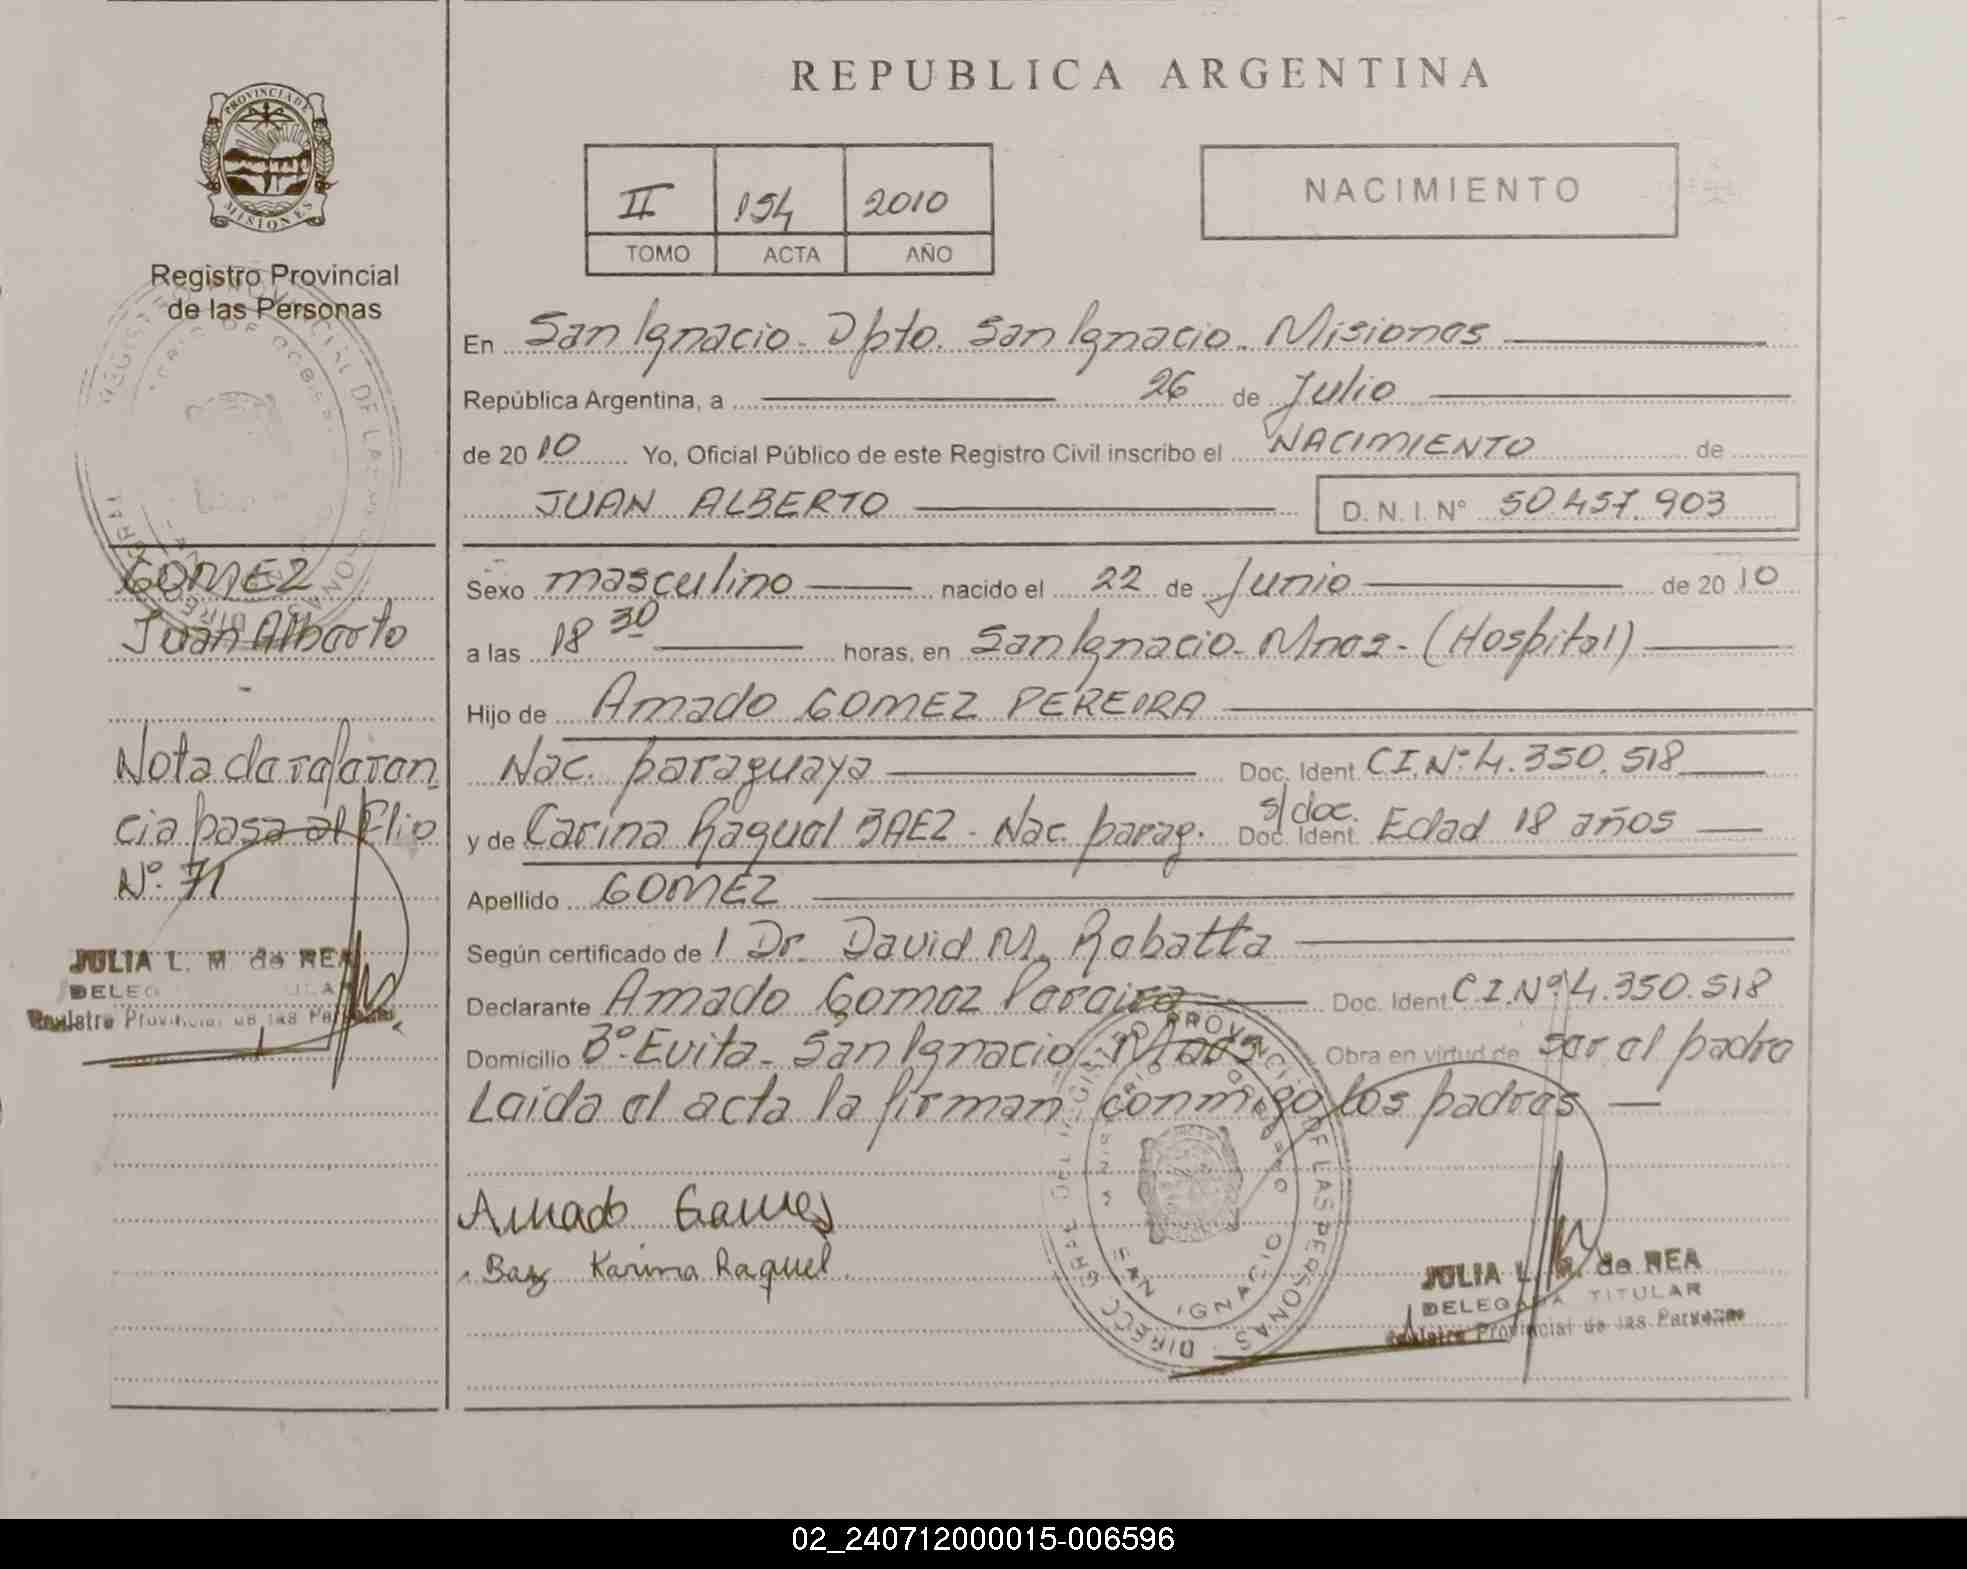 REPUBLICA ARGENTINA
PROVINCIA DE MISIONES
Registro Provincial
de las Personas
II 154 2010
TOMO ACTA AÑO
NACIMIENTO
En San Ignacio - Dpto. San Ignacio - Misiones
República Argentina, a 26 de Julio
de 2010 Yo, Oficial Público de este Registro Civil inscribo el NACIMIENTO de
JUAN ALBERTO D.N.I. Nº 50.457.903
Sexo masculino nacido el 22 de Junio de 2010
a las 18 30 horas, en San Ignacio - Mnes - (Hospital)
Hijo de Amado GOMEZ PEREIRA
Nac. paraguaya Doc. Ident. C.I. Nº 4.350.518
y de Carina Raquel BAEZ - Nac. parag. s/doc. Doc. Ident. Edad 18 años
Apellido GOMEZ
Según certificado de l Dr. David M. Robatta
Declarante Amado Gomez Pereira Doc. Ident. C.I. Nº 4.350.518
Domicilio Bº Evita - San Ignacio, Mnes Obra en virtud de ser el padre
Leida el acta la firman conmigo los padres
Amado Gomez
Baez Karina Raquel
GOMEZ
Juan Alberto
Nota de referen
cia pasa al Flio
Nº 71
JULIA L. M. de REA
DELEG
Registro Provincial de las Personas
REGISTRO PROVINCIAL DE LAS PERSONAS - DIRECC GRAL
SAN IGNACIO
JULIA L. M. de REA
DELEGADA TITULAR
Registro Provincial de las Personas
02_240712000015-006596